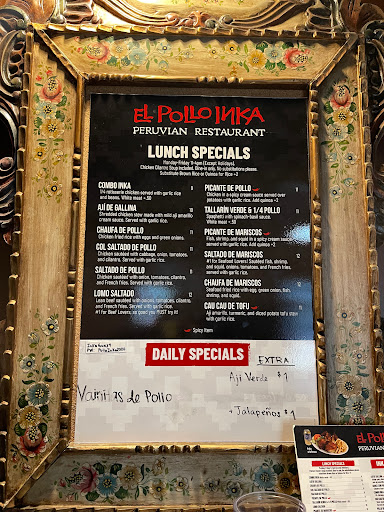 EL POLLO INKA
PERUVIAN RESTAURANT
LUNCH SPECIALS
Monday-Friday 11-4pm (Except Holidays).
Chicken Cilantro Soup included. Dine-in only. No substitutions please.
Substitute Brown Rice or Quinoa for Rice +2
COMBO INKA 11
1/4 rotisserie chicken served with garlic rice
and beans. White meat + .50
AJÍ DE GALLINA
Shredded chicken stew made with mild aji amarillo
cream sauce. Served with garlic rice.
CHAUFA DE POLLO 11
Chicken fried rice with eggs and green onions.
COL SALTADO DE POLLO 11
Chicken sautéed with cabbage, onion, tomatoes,
and cilantro. Served with garlic rice.
SALTADO DE POLLO
Chicken sautéed with onion, tomatoes, cilantro,
and French fries. Served with garlic rice.
LOMO SALTADO 12
Lean beef sautéed with onions, tomatoes, cilantro,
and French fries. Served with garlic rice.
#1 for Beef Lovers, so good you MUST try it!
PICANTE DE POLLO 11
Chicken in a spicy cream sauce served over
potatoes with garlic rice. Add quinoa +2
TALLARÍN VERDE & 1/4 POLLO
Spaghetti with spinach-basil sauce.
White meat + .50
PICANTE DE MARISCOS 12
Fish, shrimp, and squid in a spicy cream sauce
served with garlic rice. Add quinoa +2
SALTADO DE MARISCOS 12
#1 for Seafood Lovers! Sautéed fish, shrimp,
and squid, onions, tomatoes, and French fries,
served with garlic rice.
CHAUFA DE MARISCOS 12
Seafood fried rice with egg, green onion, fish,
shrimp, and squid.
CAU CAU DE TOFU
Aji amarillo, turmeric, and diced potato tofu stew
with garlic rice.
Spicy Item
DAILY SPECIALS
EXTRA
Ají Verde $1
Vainitas de Pollo
+ Jalapeños $1
EL PO
PERUVIAN
LUNCH SPECIALS